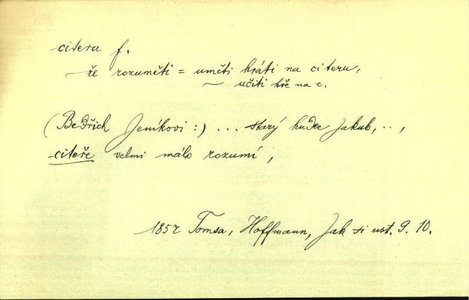 citera f.
~ ře rozuměti = uměti hráti na citeru,
~ učiti hře na c.
(Bedřich Jeníkovi:) ... starý hudec Jakub, ..,
citeře velmi málo rozumí,
1857 Tomsa, Hoffmann, Jak si ust. 9. 10.